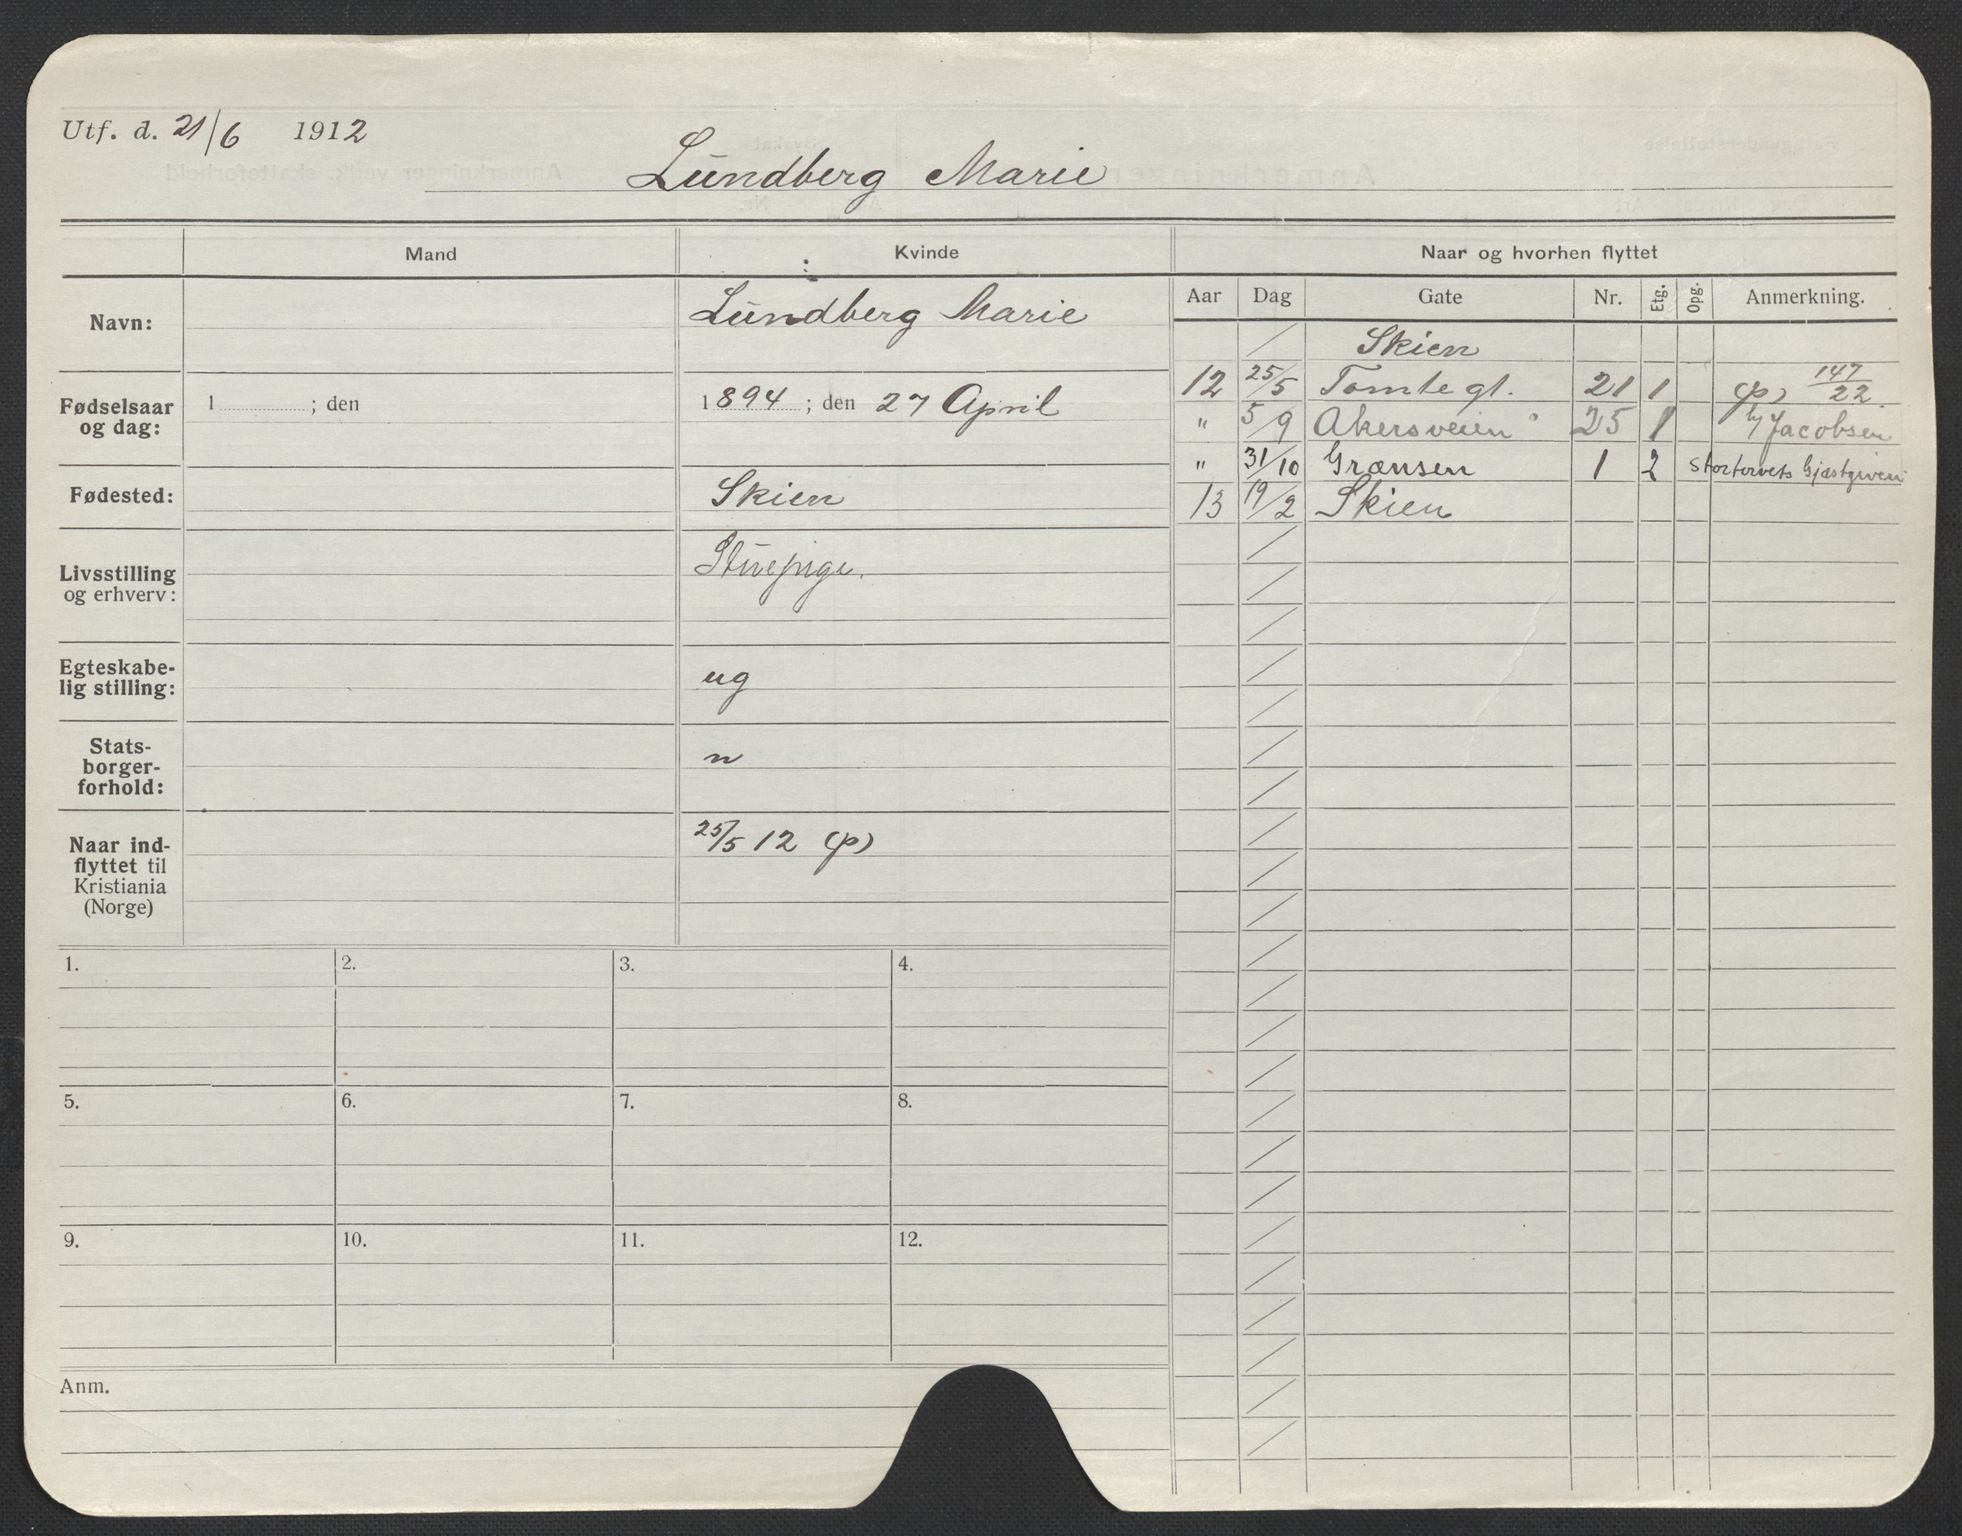 Utf. d. 21/6 1912
Lundberg Marie
Mand
Kvinde
Naar og hvorhen flyttet
Navn:
Lundberg Marie
Fødselsaar og dag:
1 ; den
1894 ; den 27 April
Fødested:
Skien
Livsstilling og erhverv:
Stuepige.
Egteskabe-
lig stilling:
ug
Stats-
borger-
forhold:
n
Naar ind-
flyttet til
Kristiania
(Norge)
25/5 12 (p)
Aar Dag Gate Nr. Etg. Opg. Anmerkning.
Skien
12 25/5 Tomtegt. 21 1 (p) 147/22
" 5/9 Akersveien 25 1 Jacobsen
" 31/10 Grænsen 1 2 Stortorvets Gjæstgiveri
13 19/2 Skien
1. 2. 3. 4.
5. 6. 7. 8.
9. 10. 11. 12.
Anm.